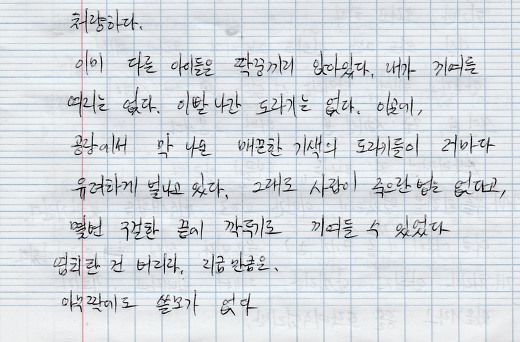 처량하다.
이미 다른 아이들은 딱궁끼리 앉아있다. 내가 끼여들
여리는 없다. 이빨 나간 도라기는 없다. 이곳에,
공장에서 막 나온 매끈한 기색의 도라기들이 저마다
유려하게 빛나고 있다. 그래도 사람이 죽으란 법은 없다고,
몇번 구걸한 끝에 깍뚜기로 끼여들 수 있었다
염치란 건 버리라, 지금만큼은.
아무짝에도 쓸모가 없다